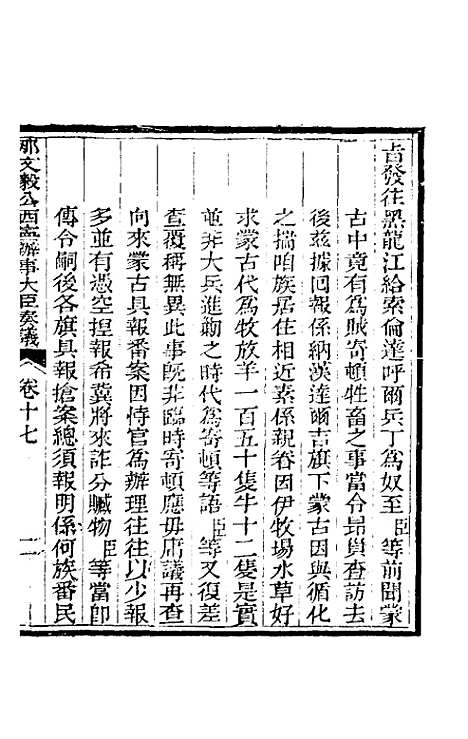 旨發往黑龍江給索倫達呼爾兵丁爲奴至臣等前聞蒙
古中竟有爲賊寄頓牲畜之事當令昂輿查訪去
後玆據回報係納漢達爾吉旗下蒙古因與循化
之揣咱族居住相近素係親眷因伊牧場水草好
求蒙古代爲牧放羊一百五十隻牛十二隻是實
並非大兵進勦之時代爲寄頓等語臣等又復差
查覆稱無異此事既非臨時寄頓應毋庸議再查
向來蒙古具報番案因恃官爲辦理往往以少報
多並有憑空捏報希冀將來詐分贓物臣等當卽
傳令嗣後各旗具報搶案總須報明係何族番民
那文毅公西寧辦事大臣奏議
卷十七
二